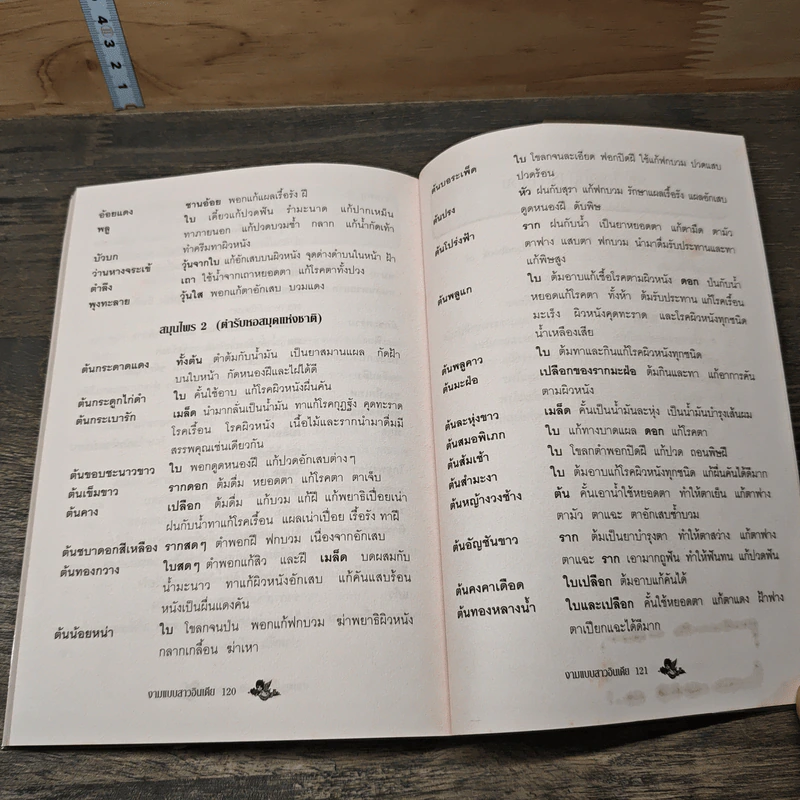 4 3 2 1
อ้อยแดง ชานอ้อย พอกแก้แผลเรื้อรัง ฝี
พลู ใบ เคี้ยวแก้ปวดฟัน รำมะนาด แก้ปากเหม็น
ทาภายนอก แก้ปวดบวมช้ำ กลาก แก้น้ำกัดเท้า
ทำครีมทาผิวหนัง
บัวบก
ว่านหางจระเข้ วุ้นจากใบ แก้อักเสบบนผิวหนัง จุดด่างดำบนใบหน้า ฝ้า
ตำลึง เถา ใช้น้ำจากเถาหยอดตา แก้โรคตาทั้งปวง
พุงทะลาย วุ้นใส พอกแก้ตาอักเสบ บวมแดง
สมุนไพร 2 (ตำรับหอสมุดแห่งชาติ)
ต้นกระดาดแดง ทั้งต้น ตำต้มกับน้ำมัน เป็นยาสมานแผล กัดฝ้า
บนใบหน้า กัดหนองฝีและไฝได้ดี
ต้นกระดูกไก่ดำ ใบ คั้นใช้อาบ แก้โรคผิวหนังผื่นคัน
ต้นกระเบารัก เมล็ด นำมากลั่นเป็นน้ำมัน ทาแก้โรคกุฏฐัง คุดทะราด
โรคเรื้อน โรคผิวหนัง เนื้อไม้และรากนำมาดื่มมี
สรรพคุณเช่นเดียวกัน
ต้นขอบชะนางขาว ใบ พอกดูดหนองฝี แก้ปวดอักเสบต่างๆ
ต้นเข็มขาว รากดอก ต้มดื่ม หยอดตา แก้โรคตา ตาเจ็บ
ต้นคาง เปลือก ต้มดื่ม แก้บวม แก้ฝี แก้พยาธิเปื่อยเน่า
ฝนกับน้ำทาแก้โรคเรื้อน แผลเน่าเปื่อย เรื้อรัง ทาฝี
ต้นชบาดอกสีเหลือง รากสดๆ ตำพอกฝี ฟกบวม เนื่องจากอักเสบ
ต้นทองกวาง ใบสดๆ ตำพอกแก้สิว และฝี เมล็ด บดผสมกับ
น้ำมะนาว ทาแก้ผิวหนังอักเสบ แก้คันแสบร้อน
หนังเป็นผื่นแดงคัน
ต้นน้อยหน่า ใบ โขลกจนป่น พอกแก้ฟกบวม ฆ่าพยาธิผิวหนัง
กลากเกลื้อน ฆ่าเหา
งามแบบสาวอินเดีย 120
ต้นบอระเพ็ด ใบ โขลกจนละเอียด ฟอกปิดฝี ใช้แก้ฟกบวม ปวดแสบ
ปวดร้อน
ต้นปรง หัว ฝนกับสุรา แก้ฟกบวม รักษาแผลเรื้อรัง แผลอักเสบ
ดูดหนองฝี ดับพิษ
ต้นโปร่งฟ้า ราก ฝนกับน้ำ เป็นยาหยอดตา แก้ตามืด ตามัว
ตาฟาง แสบตา ฟกบวม นำมาดื่มรับประทานและทา
แก้พิษสูง
ต้นพลูแก ใบ ต้มอาบแก้เชื้อโรคตามผิวหนัง ดอก ปนกับน้ำ
หยอดแก้โรคตา ทั้งห้า ต้มรับประทาน แก้โรคเรื้อน
มะเร็ง ผิวหนังคุดทะราด และโรคผิวหนังทุกชนิด
น้ำเหลืองเสีย
ต้นพลูคาว ใบ ต้มทาและกินแก้โรคผิวหนังทุกชนิด
ต้นมะฝ่อ เปลือกของรากมะฝ่อ ต้มกินและทา แก้อาการคัน
ตามผิวหนัง
ต้นละหุ่งขาว เมล็ด คั้นเป็นน้ำมันละหุ่ง เป็นน้ำมันบำรุงเส้นผม
ต้นสมอพิเภก ใบ แก้ทางบาดแผล ดอก แก้โรคตา
ต้นส้มเช้า ใบ โขลกตำพอกปิดฝี แก้ปวด ถอนพิษฝี
ต้นสำมะงา ใบ ต้มอาบแก้โรคผิวหนังทุกชนิด แก้ผื่นคันได้ดีมาก
ต้นหญ้างวงช้าง ต้น คั้นเอาน้ำใช้หยอดตา ทำให้ตาเย็น แก้ตาฟาง
ตามัว ตาแฉะ ตาอักเสบช้ำบวม
ต้นอัญชันขาว ราก ต้มเป็นยาบำรุงตา ทำให้ตาสว่าง แก้ตาฟาง
ตาแฉะ ราก เอามาถูฟัน ทำให้ฟันทน แก้ปวดฟัน
ต้นคงคาเดือด ใบเปลือก ต้มอาบแก้คันได้
ต้นทองหลางน้ำ ใบและเปลือก คั้นใช้หยอดตา แก้ตาแดง ฝ้าฟาง
ตาเปียกแฉะได้ดีมาก
งามแบบสาวอินเดีย 121